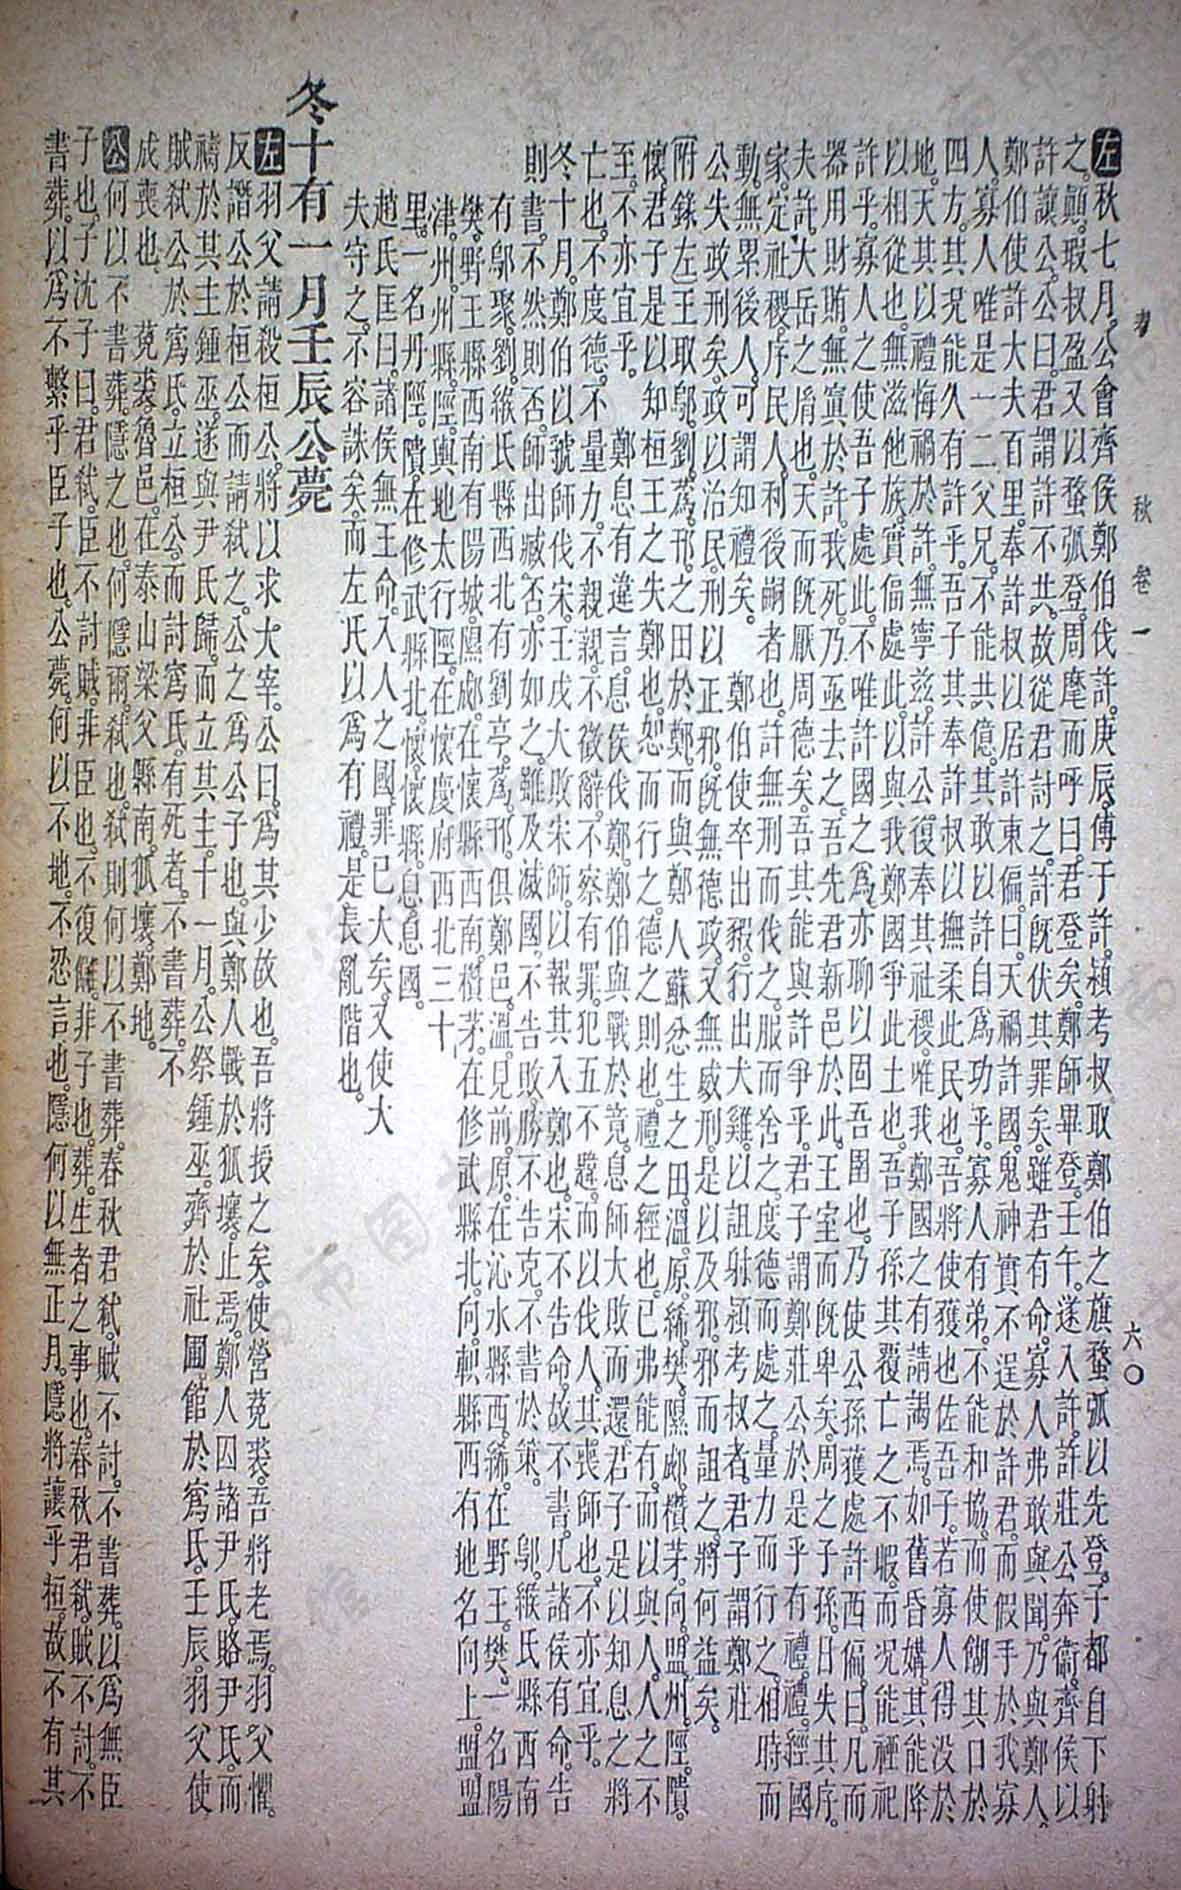 春秋卷一
六〇
左秋七月。公會齊侯鄭伯伐許。庚辰。傅于許。潁考叔取鄭伯之旗蝥弧以先登。子都自下射
之。顚。瑕叔盈又以蝥弧登。周麾而呼曰。君登矣。鄭師畢登。壬午。遂入許。許莊公奔衞。齊侯以
許讓公。公曰。君謂許不共。故從君討之。許旣伏其罪矣。雖君有命。寡人弗敢與聞。乃與鄭人。
鄭伯使許大夫百里。奉許叔以居許東偏。曰。天禍許國。鬼神實不逞於許君。而假手於我寡
人。寡人唯是一二父兄。不能共億。其敢以許自爲功乎。寡人有弟。不能和協。而使餬其口於
四方。其況能久有許乎。吾子其奉許叔以撫柔此民也。吾將使獲也佐吾子。若寡人得沒於
地。天其以禮悔禍於許。無寧茲。許公復奉其社稷。唯我鄭國之有請謁焉。如舊昏媾。其能降
以相從也。無滋他族。實偪處此。以與我鄭國爭此土也。吾子孫其覆亡之不暇。而況能禋祀
許乎。寡人之使吾子處此。不唯許國之爲。亦聊以固吾圉也。乃使公孫獲處許西偏。曰。凡而
器用財賄。無寘於許。我死。乃亟去之。吾先君新邑於此。王室而旣卑矣。周之子孫。日失其序。
夫許。大岳之胤也。天而旣厭周德矣。吾其能與許爭乎。君子謂鄭莊公於是乎有禮。禮。經國
家。定社稷。序民人。利後嗣者也。許無刑而伐之。服而舍之。度德而處之。量力而行之。相時而
動。無累後人。可謂知禮矣。　鄭伯使卒出豭。行出犬雞。以詛射潁考叔者。君子謂鄭莊
公失政刑矣。政以治民。刑以正邪。旣無德政。又無威刑。是以及邪。邪而詛之。將何益矣。
附錄左王取鄔。劉。蔿。邘之田於鄭。而與鄭人蘇忿生之田。溫。原。絺。樊。隰郕。欑茅。向。盟。州。陘。隤。
懷。君子是以知桓王之失鄭也。恕而行之。德之則也。禮之經也。已弗能有。而以與人。人之不
至。不亦宜乎。　鄭息有違言。息侯伐鄭。鄭伯與戰於竟。息師大敗而還。君子是以知息之將
亡也。不度德。不量力。不親親。不徵辭。不察有罪。犯五不韙。而以伐人。其喪師也。不亦宜乎。
冬十月。鄭伯以虢師伐宋。壬戌。大敗宋師。以報其入鄭也。宋不告命。故不書。凡諸侯有命。告
則書。不然則否。師出臧否。亦如之。雖及滅國。不告敗。勝不告克。不書於策。　鄔。緱氏縣西南
有鄔聚。劉。緱氏縣西北有劉亭。蔿。邘。俱鄭邑。溫。見前。原。在沁水縣西。絺。在野王。樊。一名陽
樊。野王縣西南有陽城。隰郕。在懷縣西南。欑茅。在修武縣北。向。軹縣西有地名向上。盟。盟
津。州。州縣。陘。與地太行陘。在懷慶府西北三十
里。一名丹陘。隤。在修武縣北。懷。懷縣。息。息國。
趙氏匡曰。諸侯無王命。入人之國。罪已大矣。又使大
夫守之。不容誅矣。而左氏以爲有禮。是長亂階也。
冬十有一月壬辰公薨
左羽父請殺桓公。將以求大宰。公曰。爲其少故也。吾將授之矣。使營菟裘。吾將老焉。羽父懼。
反譖公於桓公而請弒之。公之爲公子也。與鄭人戰於狐壤。止焉。鄭人囚諸尹氏。賂尹氏。而
禱於其主鍾巫。遂與尹氏歸。而立其主。十一月。公祭鍾巫。齊於社圃。館於寪氏。壬辰。羽父使
賊弒公於寪氏。立桓公。而討寪氏。有死者。不書葬。不
成喪也。　菟裘。魯邑。在泰山梁父縣南。狐壤。鄭地。
公何以不書葬。隱之也。何隱爾。弒也。弒則何以不書葬。春秋君弒。賊不討。不書葬。以爲無臣
子也。子沈子曰。君弒。臣不討賊。非臣也。不復讎。非子也。葬。生者之事也。春秋君弒。賊不討。不
書葬。以爲不繫乎臣子也。公薨。何以不地。不忍言也。隱何以無正月。隱將讓乎桓。故不有其